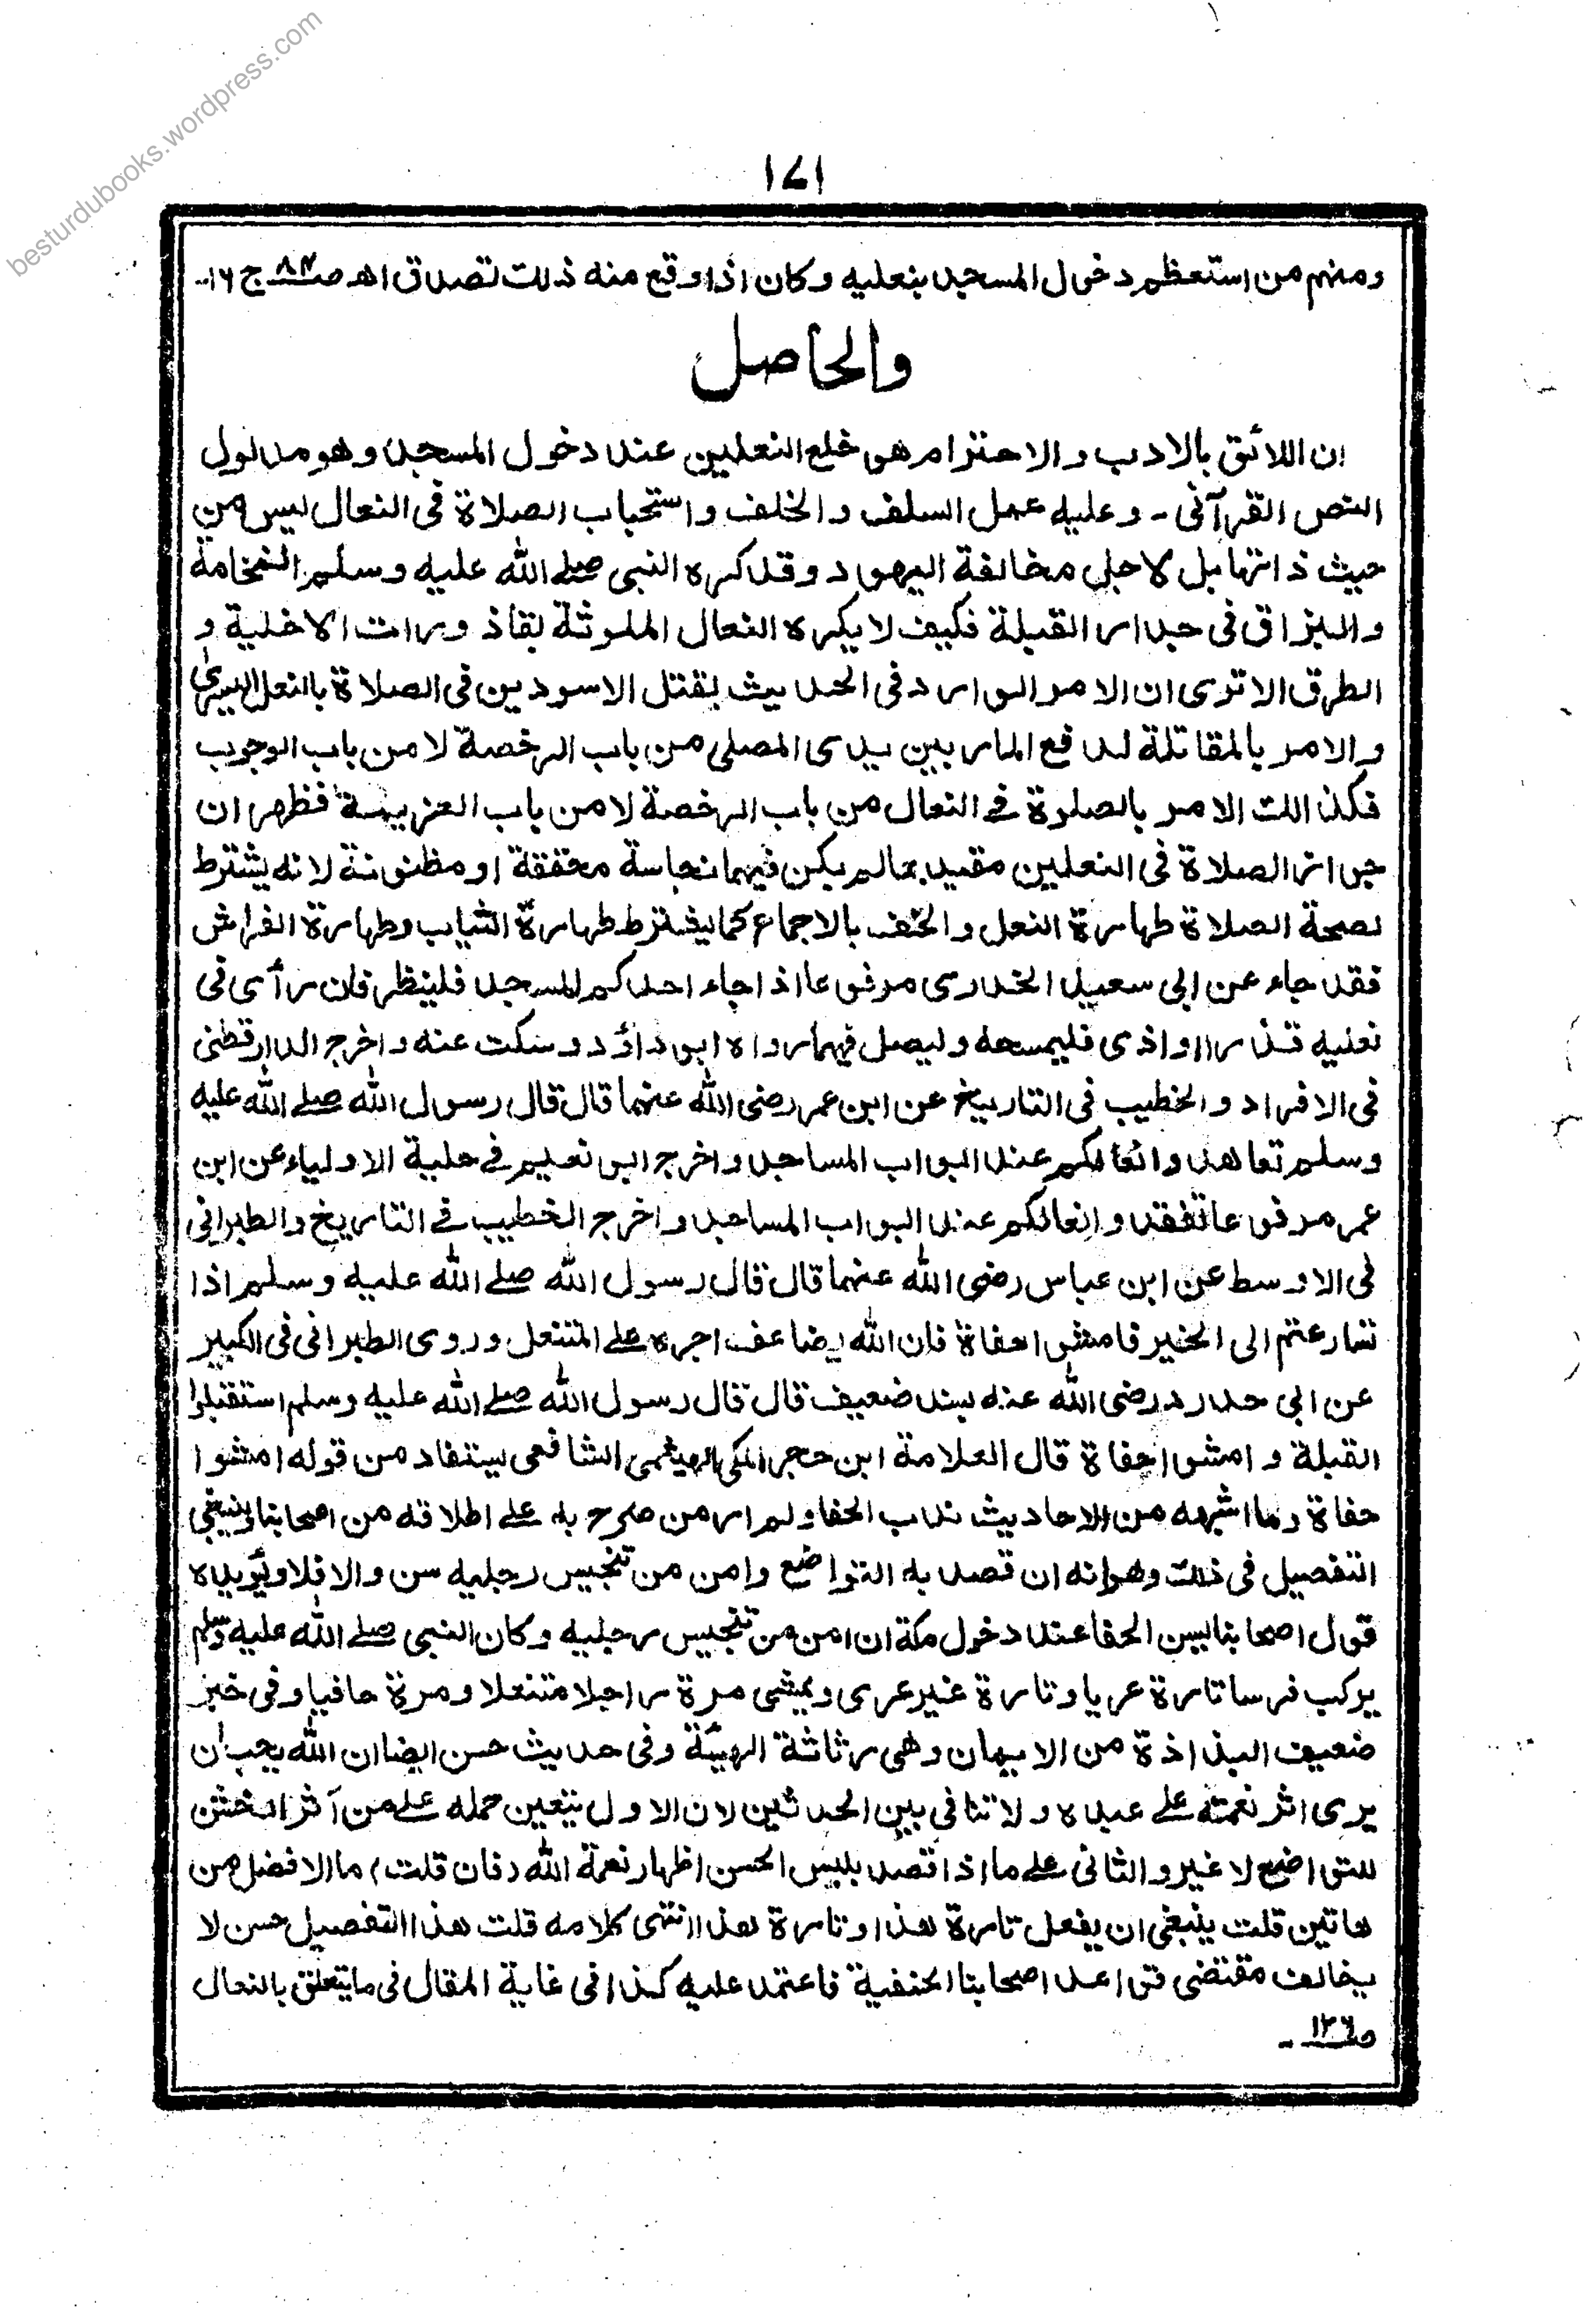 besturdubooks.wordpress.com
۱۷۱
ومنهم من استعظم دخول المسجد بنعليه وكان اذا وقع منه ذلك تصدق اھ ج ۱۶
والحاصل
ان اللائق بالادب والاحترام هو خلع النعلين عند دخول المسجد وهو مدلول
النص القرآنى ۔ وعليه عمل السلف والخلف واستحباب الصلاة فى النعال ليس من
حيث ذاتها بل لاجل مخالفة اليهود وقد كره النبى صلے الله عليه وسلم النخامة
والبزاق فى جدار القبلة فكيف لا يكره النعال الملوثة بقاذورات الاخلية و
الطرق الا ترى ان الامر الوارد فى الحديث بقتل الاسودين فى الصلاة بالنعل اليسرىٰ
والامر بالمقاتلة لدفع المار بين يدى المصلى من باب الرخصة لا من باب الوجوب
فكذالك الامر بالصلوة فے النعال من باب الرخصة لا من باب العزيمة فظهر ان
جواز الصلاة فى النعلين مقيد بما لم يكن فيهما نجاسة محققة او مظنونة لانه يشترط
لصحة الصلاة طهارة النعل والخف بالاجماع كما يشترط طهارة الثياب وطهارة الفراش
فقد جاء عن ابى سعيد الخدرى مرفوعا اذا جاء احدكم المسجد فلينظر فان رأى فى
نعليه قذرا او اذى فليمسحه وليصل فيهما رواه ابو داؤد وسكت عنه واخرج الدارقطنى
فى الافراد والخطيب فى التاريخ عن ابن عمر رضى الله عنهما قال قال رسول الله صلے الله عليه
وسلم تعاهدوا نعالكم عند ابواب المساجد واخرج ابو نعيم فے حلية الاولياء عن ابن
عمر مرفوعا تفقدوا نعالكم عند ابواب المساجد واخرج الخطيب فے التاريخ والطبرانى
فى الاوسط عن ابن عباس رضى الله عنهما قال قال رسول الله صلے الله عليه وسلم اذا
تسارعتم الى الخير فامشوا حفاة فان الله يضاعف اجره علے المتنعل وروى الطبرانى فى الكبير
عن ابى حدرد رضى الله عنه بسند ضعيف قال قال رسول الله صلے الله عليه وسلم استقبلوا
القبلة وامشوا حفاة قال العلامة ابن حجر المكى الهيثمى الشافعى يستفاد من قوله امشوا
حفاة وما اشبهه من الاحاديث ندب الحفا ولم ار من صرح به علے اطلاقه من اصحابنا وينبغى
التفصيل فى ذلك وهو انه ان قصد به التواضع وامن من تنجيس رجليه سن والا فلا ويؤيده
قول اصحابنا يسن الحفا عند دخول مكة ان امن من تنجيس رجليه وكان النبى صلے الله عليه وسلم
يركب فرسا تارة عريا وتارة غير عرى ويمشى مرة راجلا متنعلا ومرة حافيا وفى خبر
ضعيف البذاذة من الايمان وهى رثاثة الهيئة وفى حديث حسن ايضا ان الله يحب ان
يرى اثر نعمته علے عبده ولا تنافى بين الحدثين لان الاول يتعين حمله علے من آثر الخشن
للتواضع لا غير والثانى علے ما اذا قصد بلبس الحسن اظهار نعمة الله (فان قلت) ما الافضل من
هاتين قلت ينبغى ان يفعل تارة هذا وتارة هذا انتهى كلامه قلت هذا التفصيل حسن لا
يخالف مقتضى قواعد اصحابنا الحنفية فاعتمد عليه كذا فى غاية المقال فى ما يتعلق بالنعال
ص۱۲۶ ۔